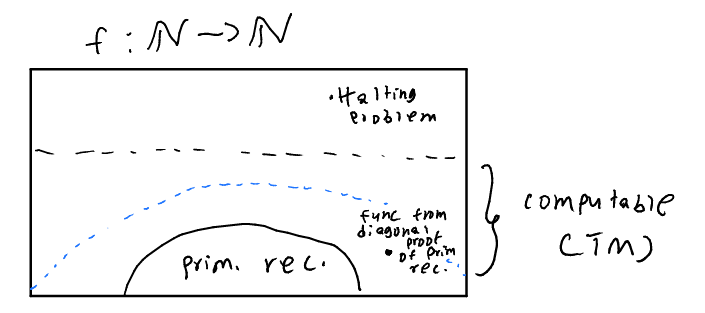 f : ℕ → ℕ
· Halting
problem
func from
diagonal
proof
• of prim
rec.
prim. rec.
computable
(TM)